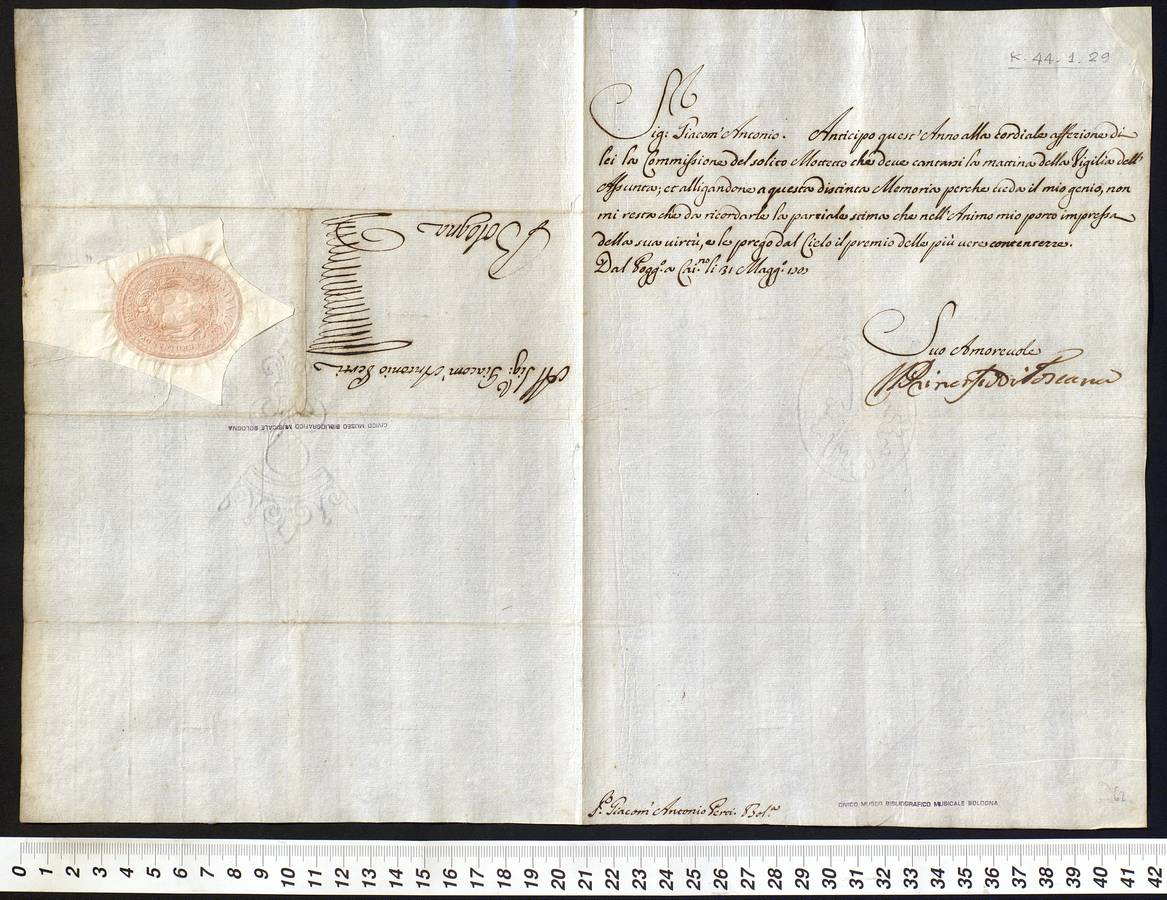 K. 44. 1. 29
Sig: Giacom' Antonio. Anticipo quest'Anno alla cordiale affezione di
lei la Commissione del solito Mottetto che deve cantarsi la mattina della Vigilia dell'
Assunta; et alligandone a questa distinta Memoria perche veda il mio genio, non
mi resta che da ricordarle la parziale stima che nell'Animo mio porto impressa
della sua virtù, e le prego dal Cielo il premio delle più vere contentezze.
Dal Pogg.º a Cai.no li 31 Magg.º
Suo Amorevole
Il Princ Ferd di Toscana
S.r Giacom' Antonio Perti. Bol.a
CIVICO MUSEO BIBLIOGRAFICO MUSICALE BOLOGNA
62
Al Sig: Giacom' Antonio Perti
Bologna
CIVICO MUSEO BIBLIOGRAFICO MUSICALE BOLOGNA
0 1 2 3 4 5 6 7 8 9 10 11 12 13 14 15 16 17 18 19 20 21 22 23 24 25 26 27 28 29 30 31 32 33 34 35 36 37 38 39 40 41 42